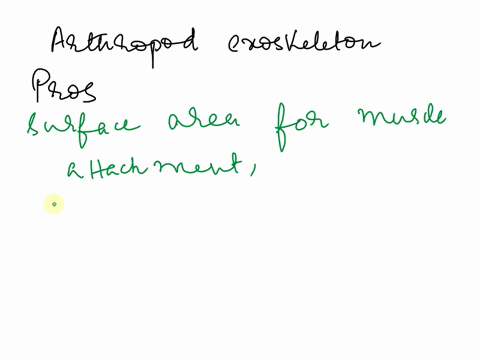 Arthropod exoskeleton
Pros
Surface area for muscle
attachment,